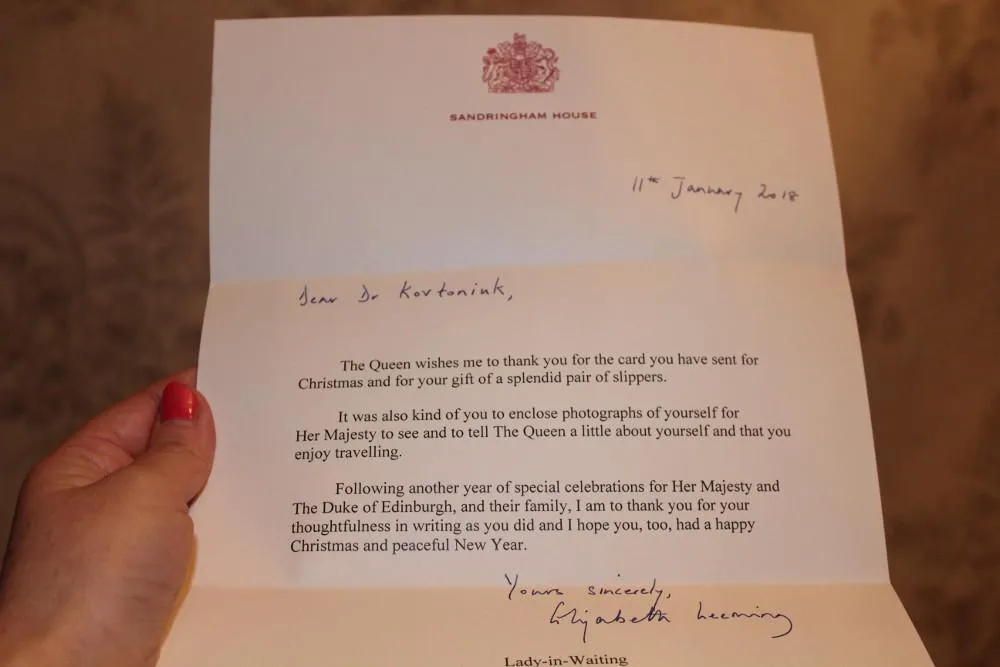 SANDRINGHAM HOUSE
11th January 2018
Dear Dr Kovtoniuk,
The Queen wishes me to thank you for the card you have sent for
Christmas and for your gift of a splendid pair of slippers.
It was also kind of you to enclose photographs of yourself for
Her Majesty to see and to tell The Queen a little about yourself and that you
enjoy travelling.
Following another year of special celebrations for Her Majesty and
The Duke of Edinburgh, and their family, I am to thank you for your
thoughtfulness in writing as you did and I hope you, too, had a happy
Christmas and peaceful New Year.
Yours sincerely,
Elizabeth Leeming
Lady-in-Waiting